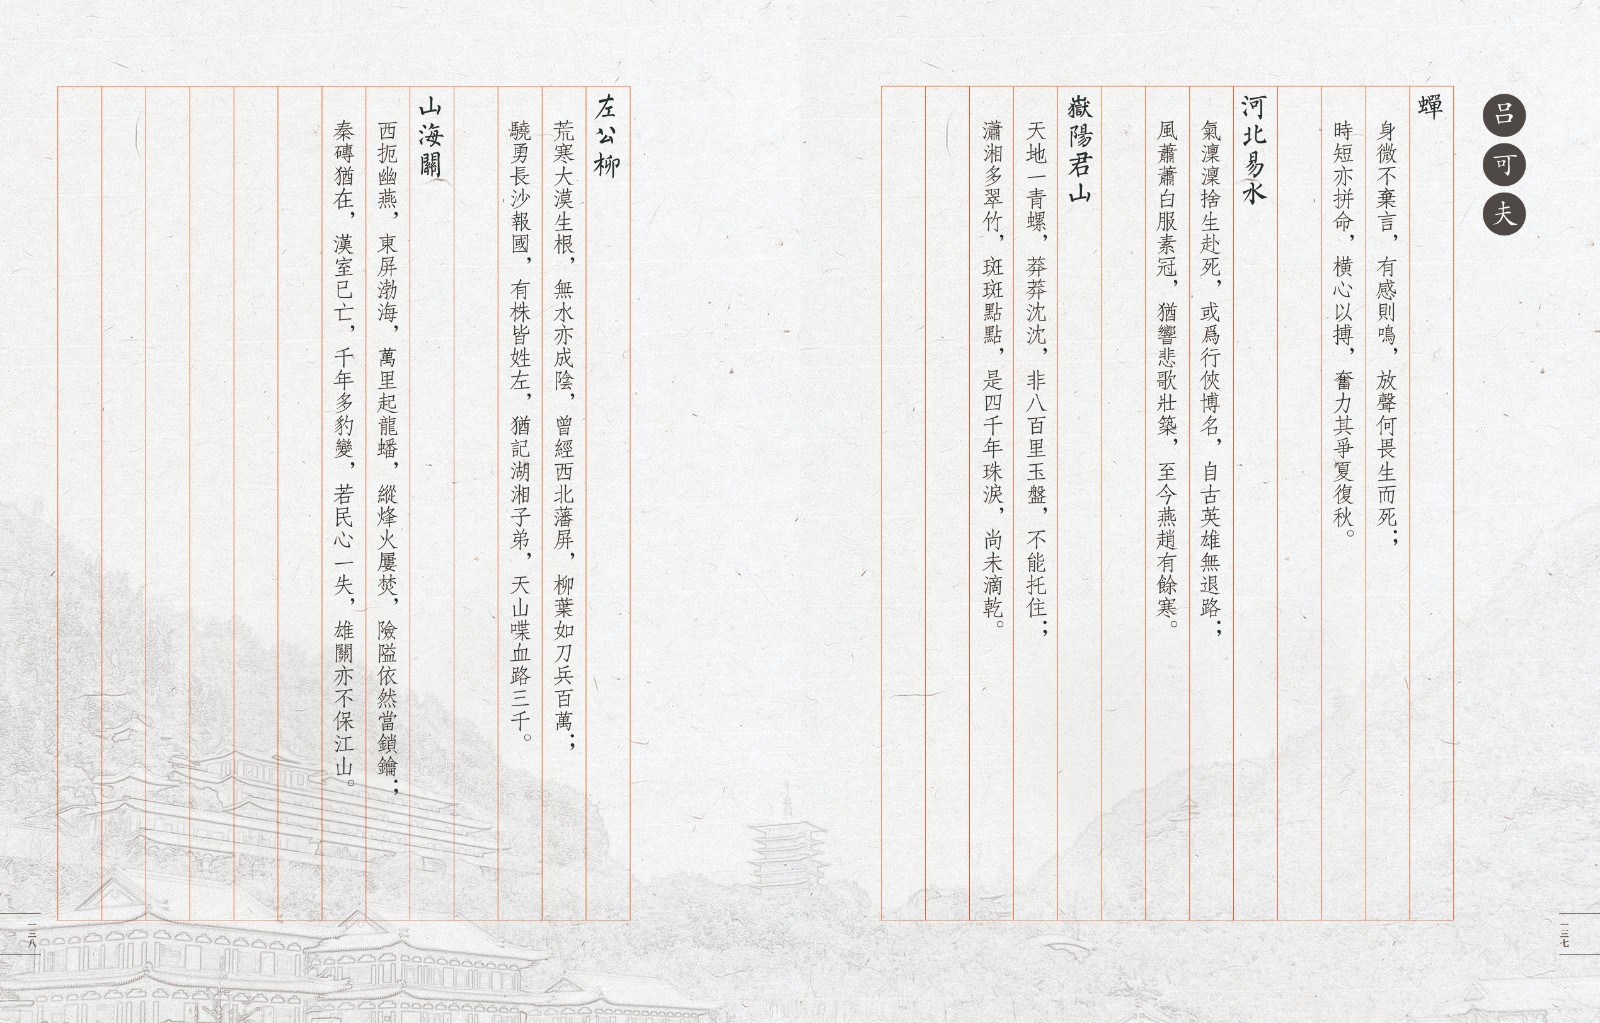 吕可夫
蟬
身微不棄言，有感則鳴，放聲何畏生而死；
時短亦拼命，橫心以搏，奮力其爭夏復秋。
河北易水
氣凜凜捨生赴死，或爲行俠博名，自古英雄無退路；
風蕭蕭白服素冠，猶響悲歌壯築，至今燕趙有餘寒。
嶽陽君山
天地一青螺，莽莽沈沈，非八百里玉盤，不能托住；
瀟湘多翠竹，斑斑點點，是四千年珠淚，尚未滴乾。
一三七
左公柳
荒寒大漠生根，無水亦成陰，曾經西北藩屏，柳葉如刀兵百萬；
驍勇長沙報國，有株皆姓左，猶記湖湘子弟，天山喋血路三千。
山海關
西扼幽燕，東屏渤海，萬里起龍蟠，縱烽火屢焚，險隘依然當鎖鑰；
秦磚猶在，漢室已亡，千年多豹變，若民心一失，雄關亦不保江山。
一三八